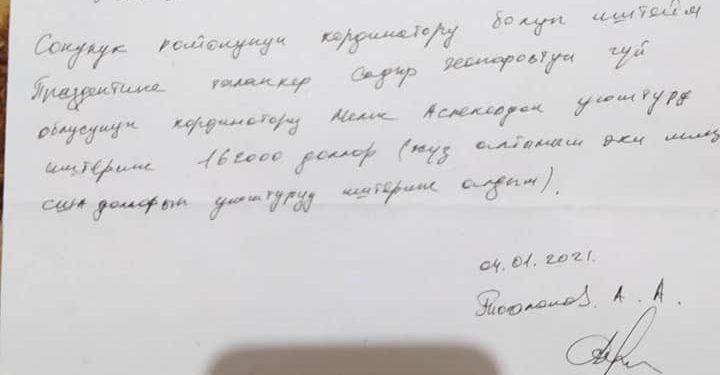 Сокулук районунун кординатору болуп иштейм
Президентине талапкер Садыр Жапаровтун чуй
облусунун кординатору Мелис Аспековдон уюштуруу
иштерине 162000 доллар (жуз алтымыш эки миң
сша долларын уюштуруу иштерине алдым).
04.01.2021.
А. А.